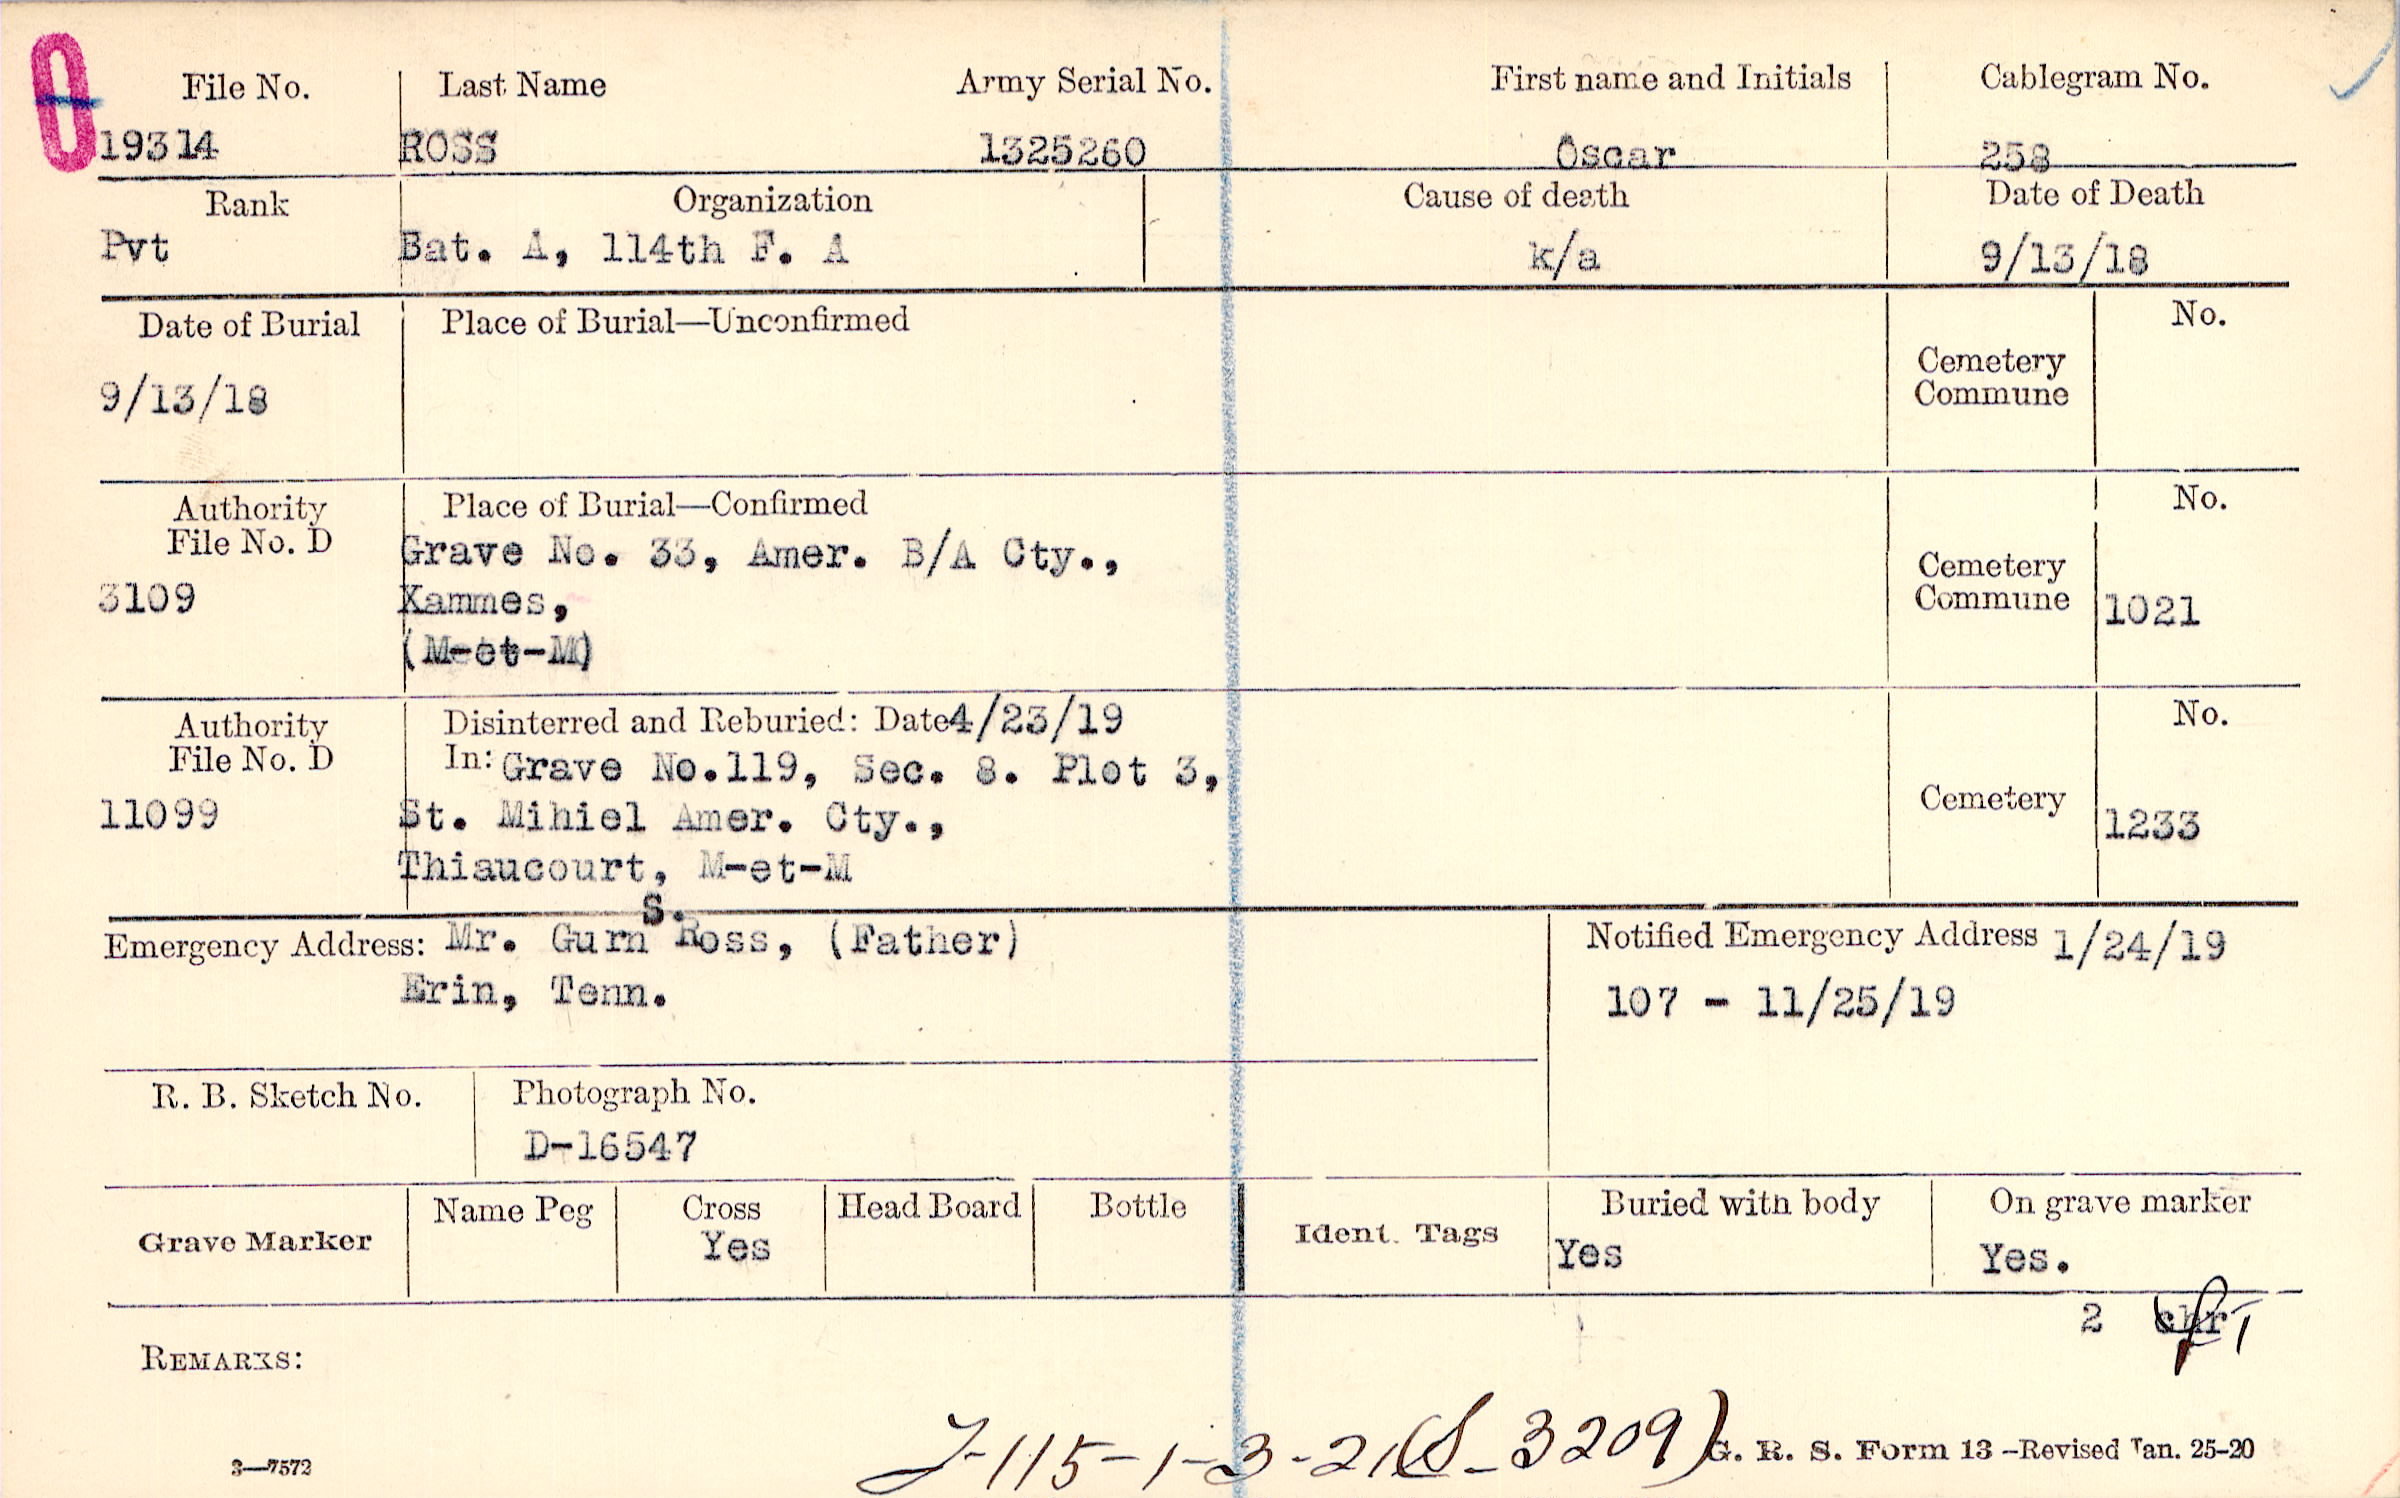 0
File No. Last Name Army Serial No. First name and Initials Cablegram No.
19314 ROSS 1325260 Oscar 258
Rank Organization Cause of death Date of Death
Pvt Bat. A, 114th F. A k/a 9/13/18
Date of Burial Place of Burial—Unconfirmed No.
Cemetery
Commune
9/13/18
Authority Place of Burial—Confirmed No.
File No. D Grave No. 33, Amer. B/A Cty.,
Cemetery
3109 Xammes, Commune 1021
(M-et-M)
Authority Disinterred and Reburied: Date 4/23/19 No.
File No. D In: Grave No.119, Sec. 8. Plot 3,
11099 St. Mihiel Amer. Cty., Cemetery 1233
Thiaucourt, M-et-M
S.
Emergency Address: Mr. Gurn Ross, (Father) Notified Emergency Address 1/24/19
Erin, Tenn. 107 - 11/25/19
R. B. Sketch No. Photograph No.
D-16547
Name Peg Cross Head Board Bottle Buried with body On grave marker
Grave Marker Yes Ident. Tags Yes Yes.
2 chr
REMARKS:
J-115-1-3-21(S-3209)
3—7572 G. R. S. Form 13 -Revised Jan. 25-20